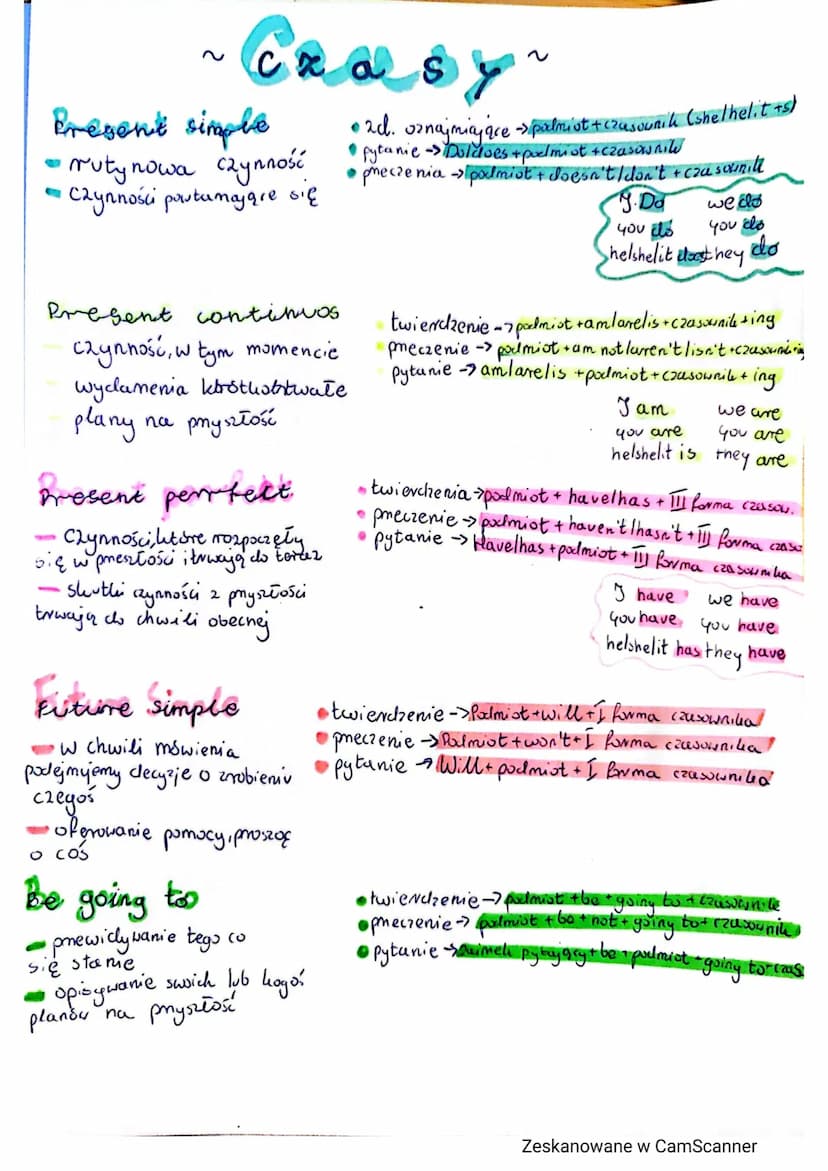 ~ Czasy ~
Present simple
- rutynowa czynność
- czynności powtarzające się
• zd. oznajmiające → podmiot + czasownik (she/he/it + s)
• pytanie → Do/does + podmiot + czasownik
• przeczenia → podmiot + doesn't/don't + czasownik
I Do we do
you do you do
he/she/it does they do
Present continuos
czynność, w tym momencie
wydarzenia krótkotrwałe
plany na przyszłość
twierdzenie → podmiot + am/are/is + czasownik + ing
• przeczenie → podmiot + am not/arren't/isn't + czasownik+ing
pytanie → am/are/is + podmiot + czasownik + ing
I am we are
you are you are
he/she/it is they are
Present perrfect
- Czynności, które rozpoczęły
się w przeszłości i trwają do teraz
- skutki czynności z przyszłości
trwają do chwili obecnej
• twierdzenia → podmiot + have/has + III forma czasow.
• przeczenie → podmiot + haven't/hasn't + III forma czaso
• pytanie → Have/has + podmiot + III forma czasownika
I have we have
you have you have
he/she/it has they have
Future simple
- w chwili mówienia
podejmujemy decyzje o zrobieniu
czegoś
- oferowanie pomocy, proszę
o coś
• twierdzenie → Podmiot + will + I forma czasownika
• przeczenie → Podmiot + won't + I forma czasownika
• pytanie → Will + podmiot + I forma czasownika
Be going to
- przewidywanie tego co
się stanie
- opisywanie swoich lub kogoś
planów na przyszłość
• twierdzenie → podmiot + be + going to + czasownik
• przeczenie → podmiot + be + not + going to + czasownik
• pytanie → zaimek pytający + be + podmiot + going to + czas
Zeskanowane w CamScanner